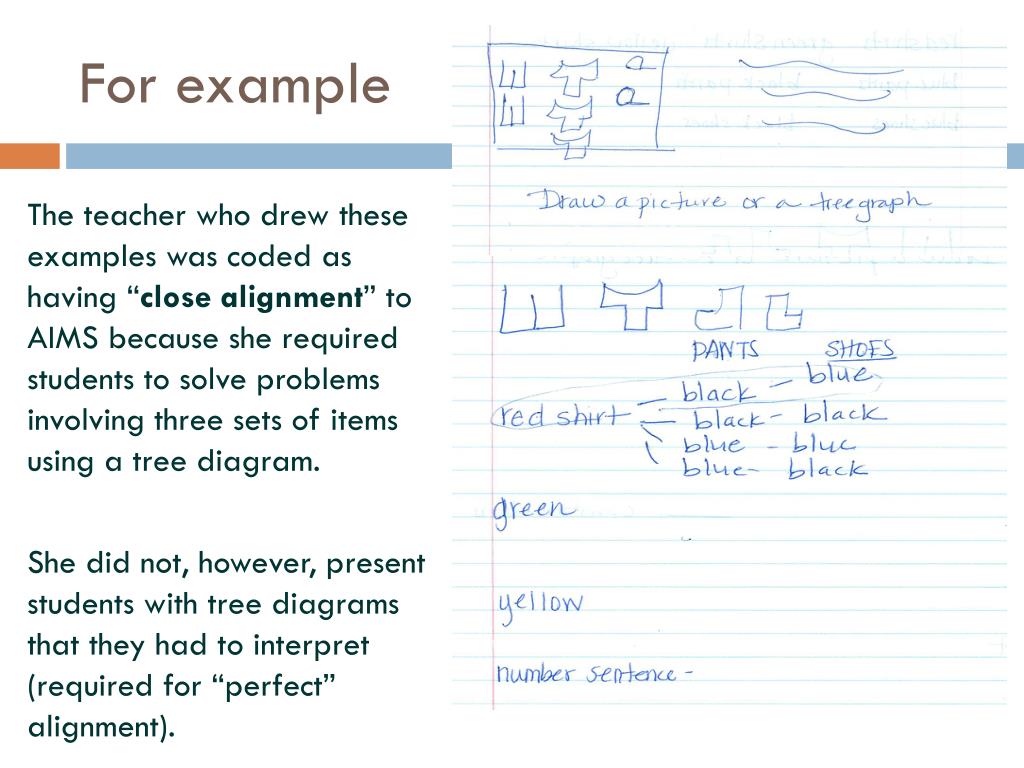 For example
The teacher who drew these
examples was coded as
having “close alignment” to
AIMS because she required
students to solve problems
involving three sets of items
using a tree diagram.
She did not, however, present
students with tree diagrams
that they had to interpret
(required for “perfect”
alignment).
Draw a picture or a treegraph
PANTS SHOES
red shirt black - blue
black - black
blue - blue
blue - black
green
yellow
number sentence -